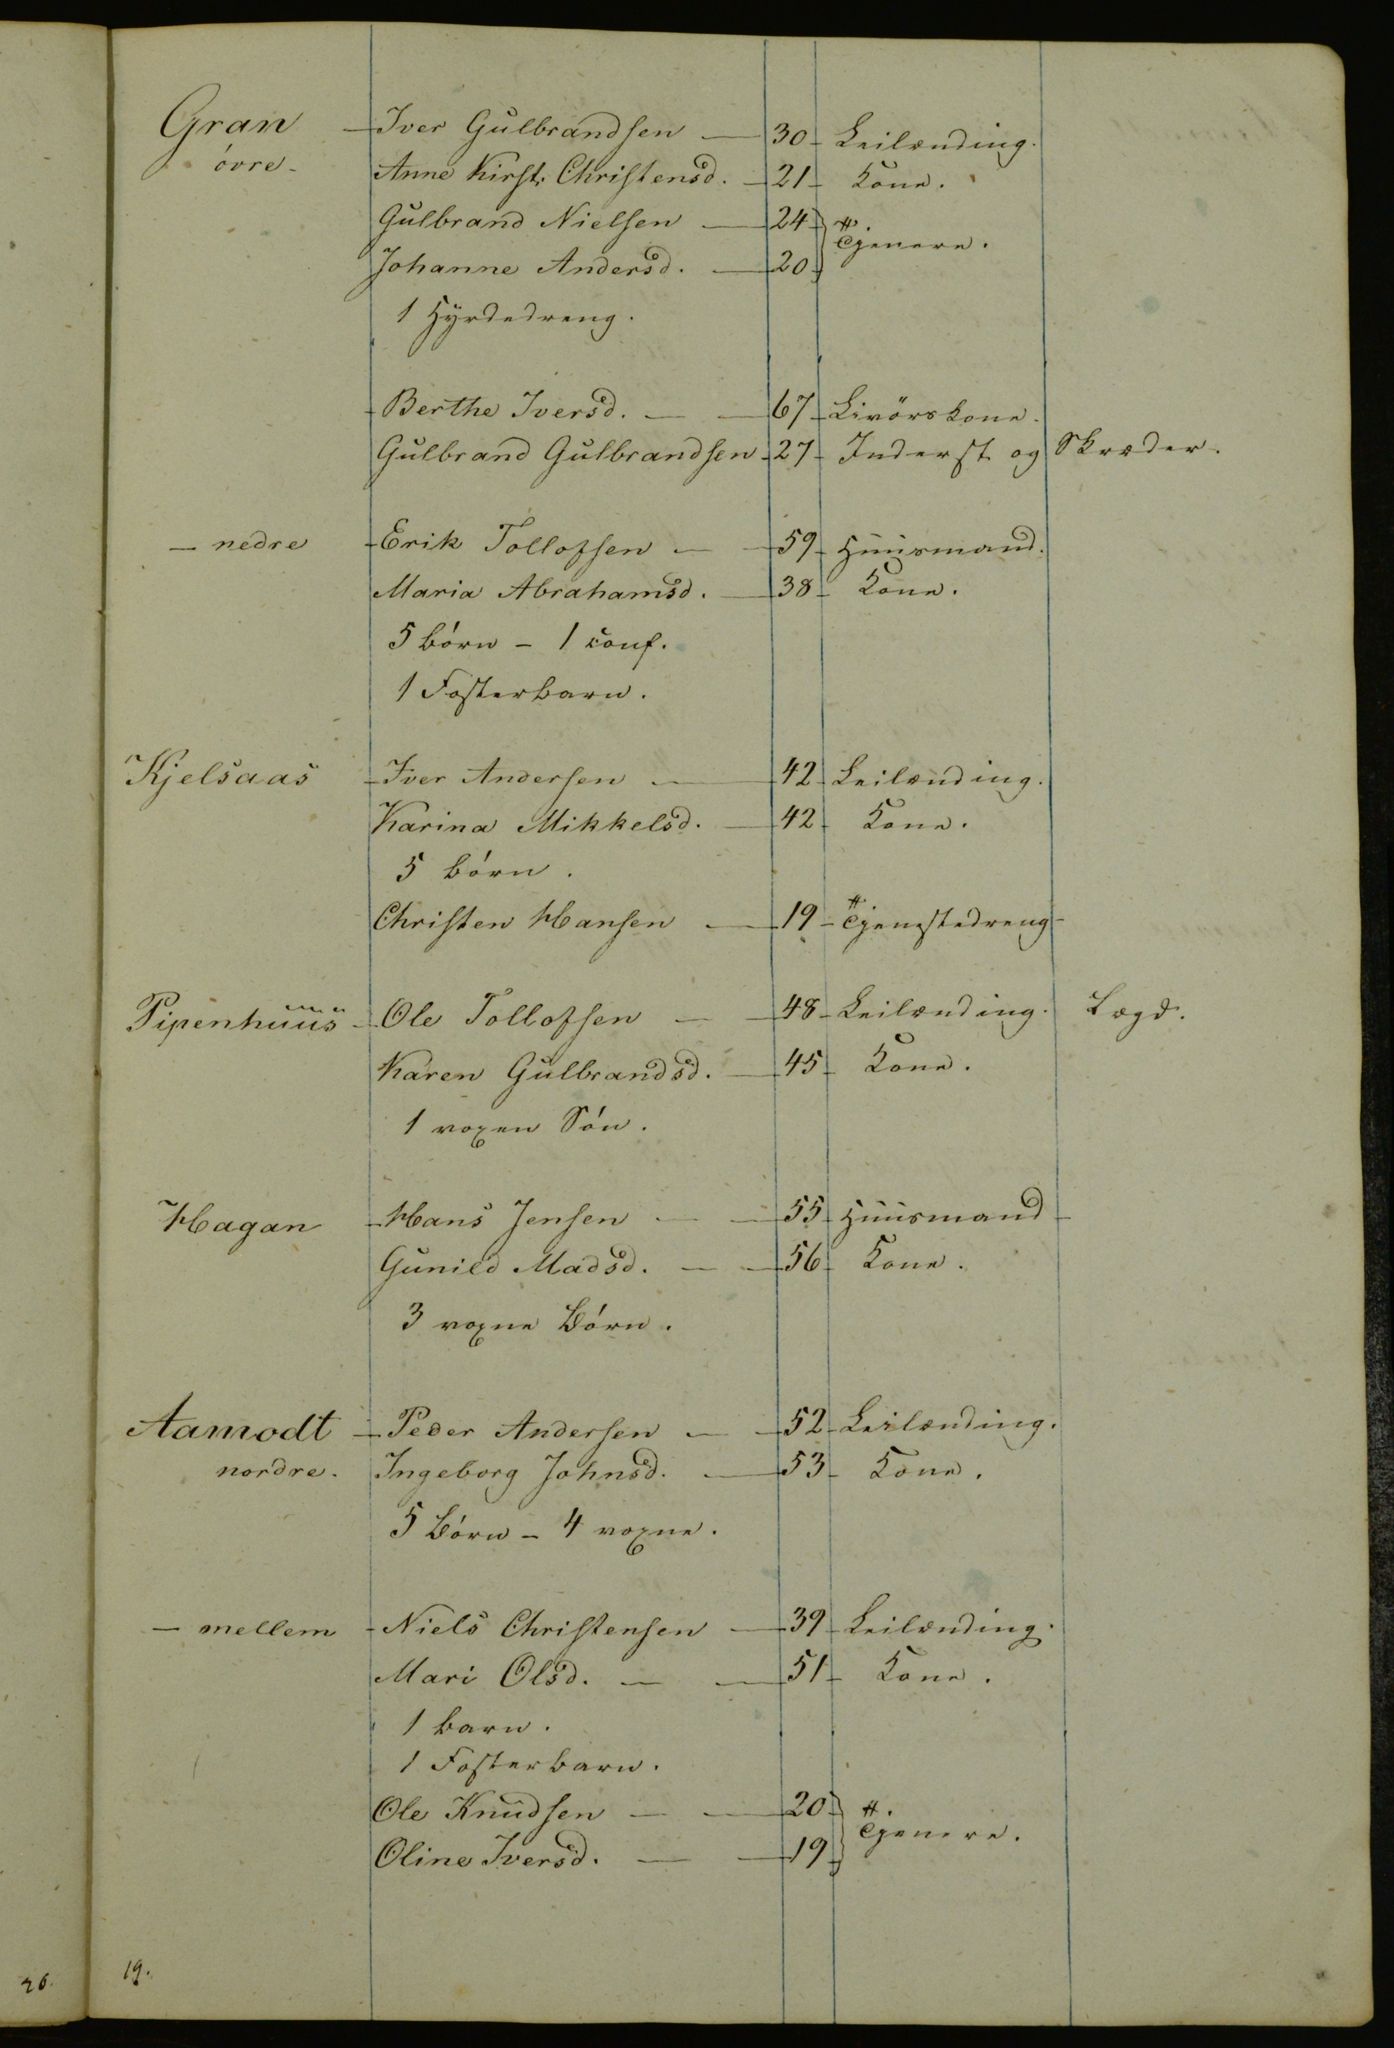 Gran — Iver Gulbrandsen — 30 – Leilænding.
övre – Anne Kirst. Christensd. – 21 – Kone.
Gulbrand Nielsen — 24 } Tjenere.
Johanne Andersd. — 20 }
1 Hyrdedreng.
Berthe Iversd. — — 67 – Livörskone.
Gulbrand Gulbrandsen – 27 – Inderst og Skræder.
— nedre – Erik Tollofsen — — 59 – Huusmand.
Maria Abrahamsd. — 38 – Kone.
5 börn – 1 conf.
1 Fosterbarn.
Kjelsaas – Iver Andersen — — 42 – Leilænding.
Karina Mikkelsd. — 42 – Kone.
5 börn.
Christen Hansen — 19 – Tjenestedreng –
Pipenhuus – Ole Tollofsen — — 48 – Leilænding. Lægd.
Karen Gulbrandsd. — 45 – Kone.
1 voxen Sön.
Hagan – Hans Jensen — — 55 – Huusmand –
Gunild Madsd. — — 56 – Kone.
3 voxne Börn.
Aamodt – Peder Andersen — — 52 – Leilænding.
nordre. Ingeborg Johnsd. — 53 – Kone.
5 Börn – 4 voxne.
— mellem – Niels Christensen — 39 – Leilænding.
Mari Olsd. — — 51 – Kone.
1 barn.
1 Fosterbarn.
Ole Knudsen — — 20 } Tjenere.
Oline Iversd. — — 19 }
26.
19.